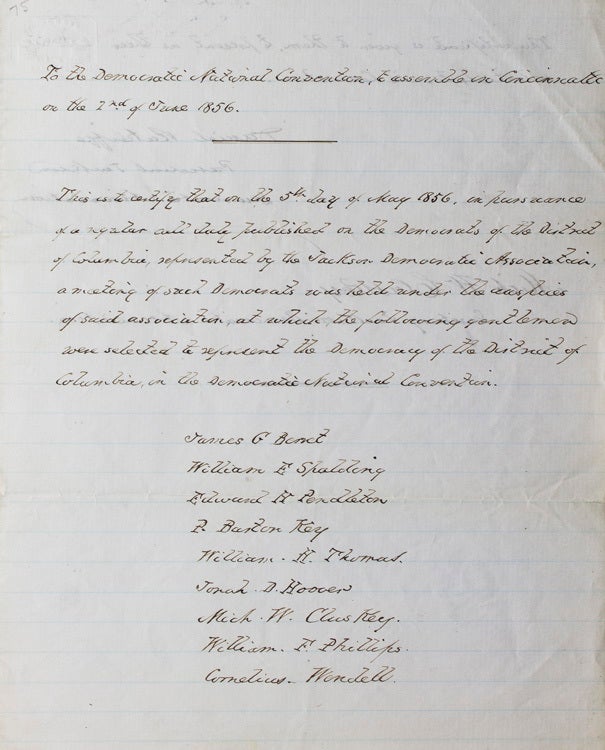 75
To the Democratic National Convention, to assemble in Cincinnatti
on the 2nd of June 1856.
This is to certify that on the 5th day of May 1856, in pursuance
of a regular call duly published on the Democrats of the District
of Columbia, represented by the Jackson Democratic Association,
a meeting of such Democrats was held under the auspices
of said association, at which the following gentlemen
were selected to represent the Democracy of the District of
Columbia, in the Democratic National Convention.
James G Berret
William E Spalding
Edward H Pendleton
P. Barton Key
William. H. Thomas.
Jonah. D. Hoover
Mich. W. Cluskey.
William. F. Phillips.
Cornelius- Wendell.